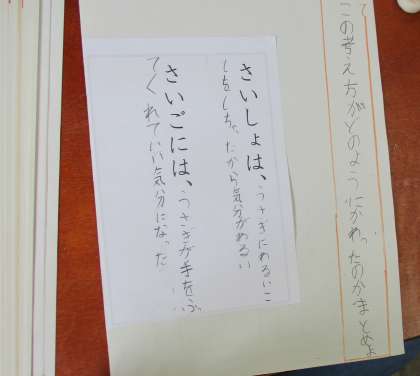 この考え方がどのようにかわったのかまとめよ
さいしょは、うさぎにめるいこ
としちゃったから気分がめるい
さいごには、うさぎが手をふっ
てくれていい気分になった